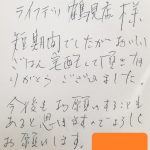 ライフデリ 鶴見店 様
短期間でしたがおいしい
ごはん宅配して頂きあ
りがとうございました。
今後もお願いすることも
あると思いますのでよろしく
お願いします。